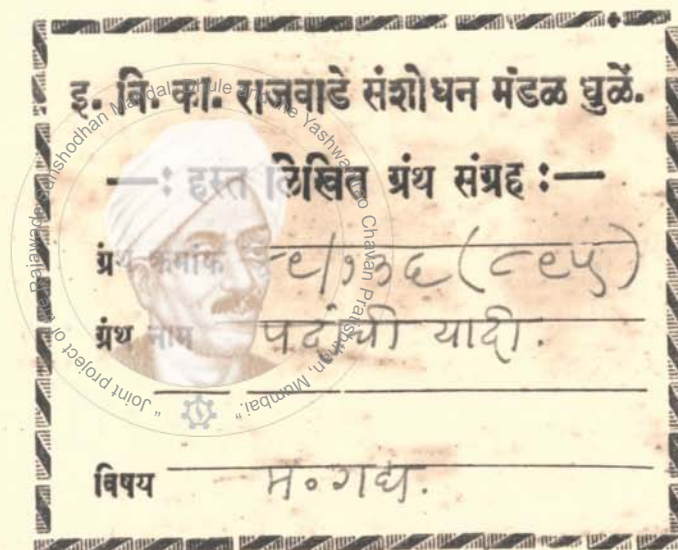 इ. वि. का. राजवाडे संशोधन मंडळ धुळें.
—: हस्त लिखित ग्रंथ संग्रह :—
ग्रंथ क्रमांक ८९/१३६ (८९५)
ग्रंथ नाम पदांची यादी.
विषय म०गद्य.
"Joint project of the Rajawade Sanshodhan Mandal, Dhule and the Yashwantrao Chavan Pratishthan, Mumbai."